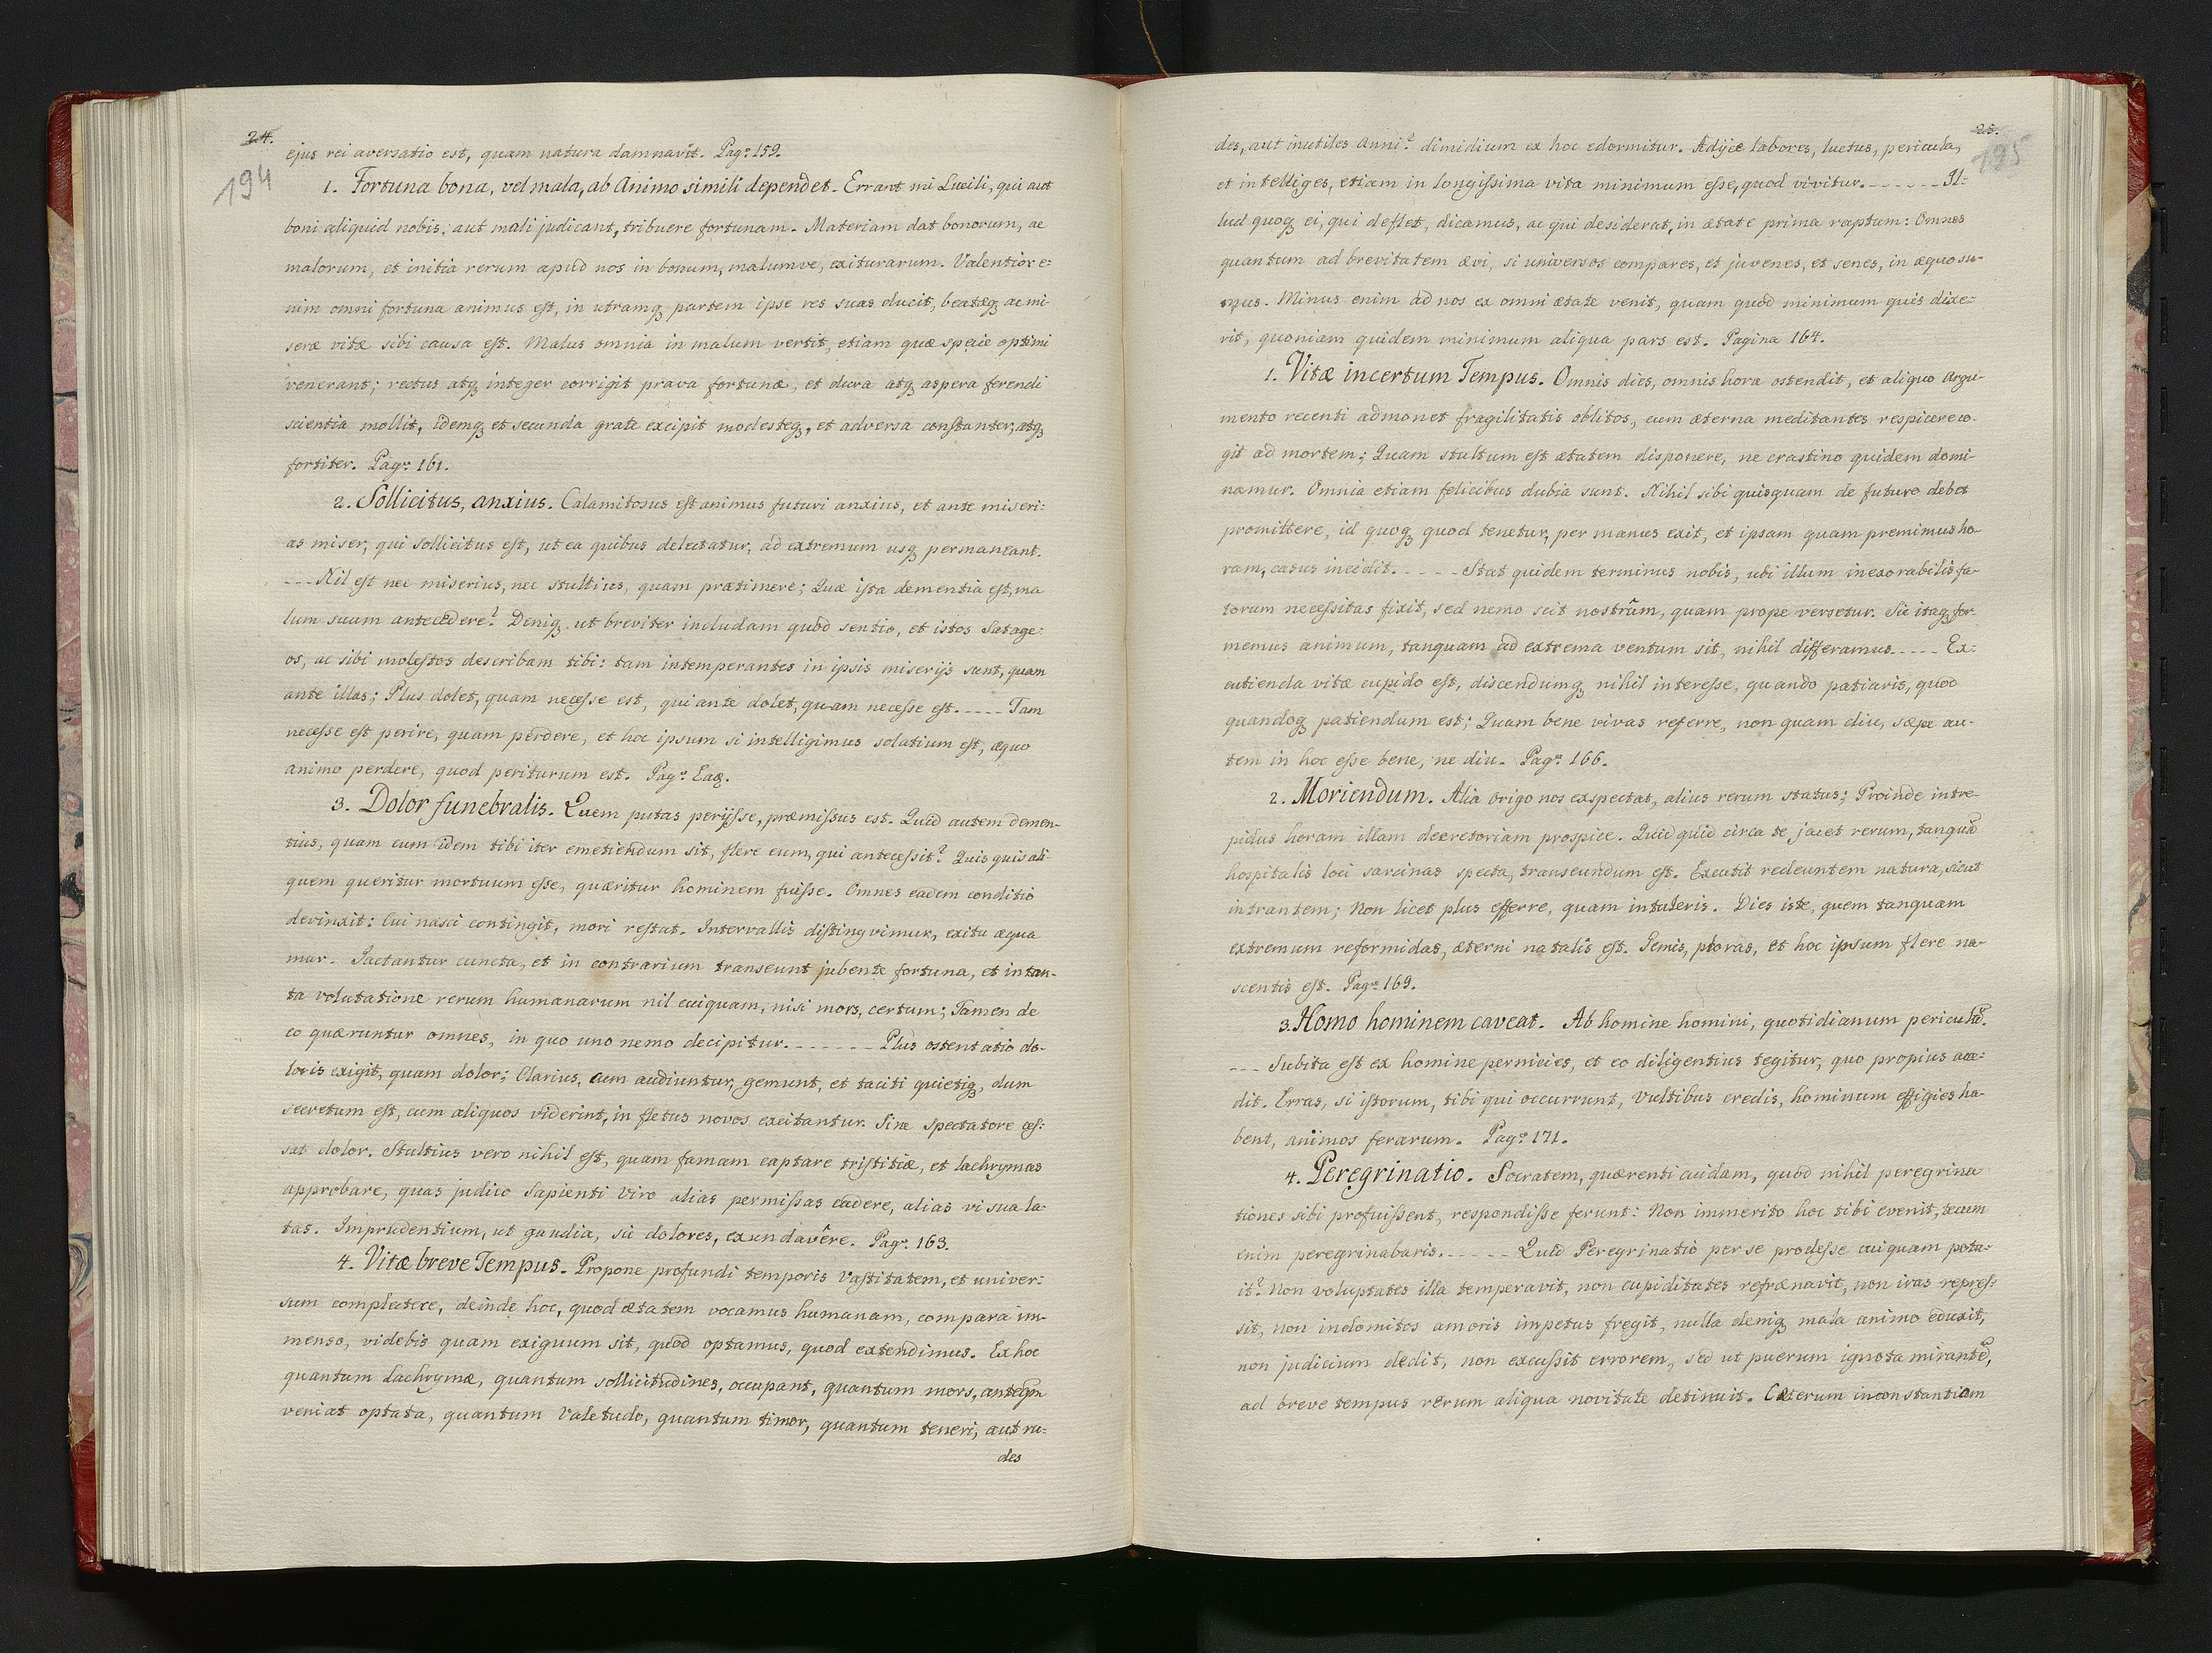 24.
194
ejus rei aversatio est, quam natura damnavit. Pag: 159.
1. Fortuna bona, vel mala, ab Animo simili dependet. Errant mi Lucili, qui aut
boni aliquid nobis, aut mali judicant, tribuere fortunam. Materiam dat bonorum, ac
malorum, et initia rerum apud nos in bonum, malumve, exiturarum. Valentior e=
nim omni fortuna animus est, in utramq partem ipse res suas ducit, beatæq ac mi-
seræ vitæ sibi causa est. Malus omnia in malum vertit, etiam quæ specie optimi
venerant; rectus atq integer corrigit prava fortunæ, et dura atq aspera ferendi
scientia mollit, idemq et secunda grate excipit modesteq, et adversa constanter, atq
fortiter. Pag: 161.
2. Sollicitus, anxius. Calamitosus est animus futuri anxius, et ante miseri=
as miser, qui sollicitus est, ut ea quibus delectatur, ad extremum usq permaneant.
--- Nil est nec miserius, nec stultius, quam prætimere; Quæ ista dementia est, ma
lum suum antecedere? Deniq ut breviter includam quod sentio, et istos satage=
os, ac sibi molestos describam tibi: tam intemperantes in ipsis miserijs sunt, quam
ante illas; Plus dolet, quam necesse est, qui ante dolet, quam necesse est. ---- Tam
necesse est perire, quam perdere, et hoc ipsum si intelligimus solatium est, æquo
animo perdere, quod periturum est. Pag: Eaq.
3. Dolor funebralis. Quem putas perijsse, præmissus est. Quid autem demen-
tius, quam cum idem tibi iter emetiendum sit, flere eum, qui antecessit? Quis quis ali-
quem queritur mortuum esse, quæritur hominem fuisse. Omnes eadem conditio
devinxit: Cui nasci contingit, mori restat. Intervallis distingvimur, exitu æqua
mur. Jactantur cuncta, et in contrarium transeunt jubente fortuna, et in tan-
ta volutatione rerum humanarum nil cuiquam, nisi mors, certum; Tamen de
eo quæruntur omnes, in quo uno nemo decipitur. ------- Plus ostentatio do-
loris exigit, quam dolor; Clarius, cum audiuntur, gemunt, et taciti quietiq, dum
secretum est, cum aliquos viderint, in fletus novos excitantur. Sine Spectatore ces=
sat dolor. Stultius vero nihil est, quam famam captare tristitiæ, et lachrymas
approbare, quas judico Sapienti Viro alias permissas cadere, alias vi sua la-
tas. Imprudentium, ut gaudia, sic dolores, exundavêre. Pag: 163.
4. Vitæ breve Tempus. Propone profundi temporis Vastitatem, et univer=
sum complectere, deinde hoc, quod ætatem vocamus humanam, compara im-
menso, videbis quam exiguum sit, quod optamus, quod extendimus. Ex hoc
quantum Lachrymæ, quantum sollicitudines, occupant, quantum mors, anteqm
veniat optata, quantum Valetudo, quantum timor, quantum teneri, aut ru=
des
25.
195
des, aut inutiles anni? dimidium ex hoc edormitur. Adjice labores, luctus, pericula,
et intelliges, etiam in longissima vita minimum esse, quod vivitur. ------ Il=
lud quoq ei, qui deflet, dicamus, ac qui desiderat, in ætate prima raptum: Omnes
quantum ad brevitatem ævi, si universos compares, et juvenes, et senes, in æquo su-
mus. Minus enim ad nos ex omni ætate venit, quam quod minimum quis dixe=
rit, quoniam quidem minimum aliqua pars est. Pagina 164.
1. Vitæ incertum Tempus. Omnis dies, omnis hora ostendit, et aliquo Argu-
mento recenti admonet fragilitatis oblitos, cum æterna meditantes respicere co-
git ad mortem; Quam stultum est ætatem disponere, ne crastino quidem domi-
namur. Omnia etiam felicibus dubia sunt. Nihil sibi quisquam de futuro debet
promittere, id quoq quod tenetur, per manus exit, et ipsam quam premimus ho-
ram, casus incidit. ---- Stat quidem terminus nobis, ubi illum inexorabilis fa-
torum necessitas fixit, sed nemo scit nostrûm, quam prope versetur. Sic itaq for-
memus animum, tanquam ad extrema ventum sit, nihil differamus. ---- Ex=
cutienda vitæ cupido est, discendumq nihil interesse, quando patiaris, quod
quandoq patiendum est; Quam bene vivas referre, non quam diu, sæpe au-
tem in hoc esse bene, ne diu. Pag: 166.
2. Moriendum. Alia origo nos exspectat, alius rerum status; Proinde intre-
pidus horam illam decretoriam prospice. Quidquid circa te jacet rerum, tanquã
hospitalis loci sarcinas specta, transeundum est. Excutit redeuntem natura, sicut
intrantem; Non licet plus efferre, quam intuleris. Dies iste, quem tanquam
extremum reformidas, æterni natalis est. Gemis, ploras, et hoc ipsum flere na-
scentis est. Pag: 169.
3. Homo hominem caveat. Ab homine homini, quotidianum periculũ.
--- Subita est ex homine pernicies, et eo diligentius tegitur, quo propius acce=
dit. Erras, si istorum, tibi qui occurrunt, Vultibus credis, hominum effigies ha-
bent, animos ferarum. Pag: 171.
4. Peregrinatio. Socratem, quærenti cuidam, quod nihil peregrina
tiones sibi profuissent, respondisse ferunt: Non immerito hoc tibi evenit, tecum
enim peregrinabaris. ----- Quid Peregrinatio per se prodesse cuiquam potu-
it? Non voluptates illa temperavit, non cupiditates refrænavit, non iras repres=
sit, non indomitos amoris impetus fregit, nulla deniq mala animo eduxit,
non judicium dedit, non excussit errorem, sed ut puerum ignota mirantẽ,
ad breve tempus rerum aliqua novitate detinuit. Cæterum inconstantiam